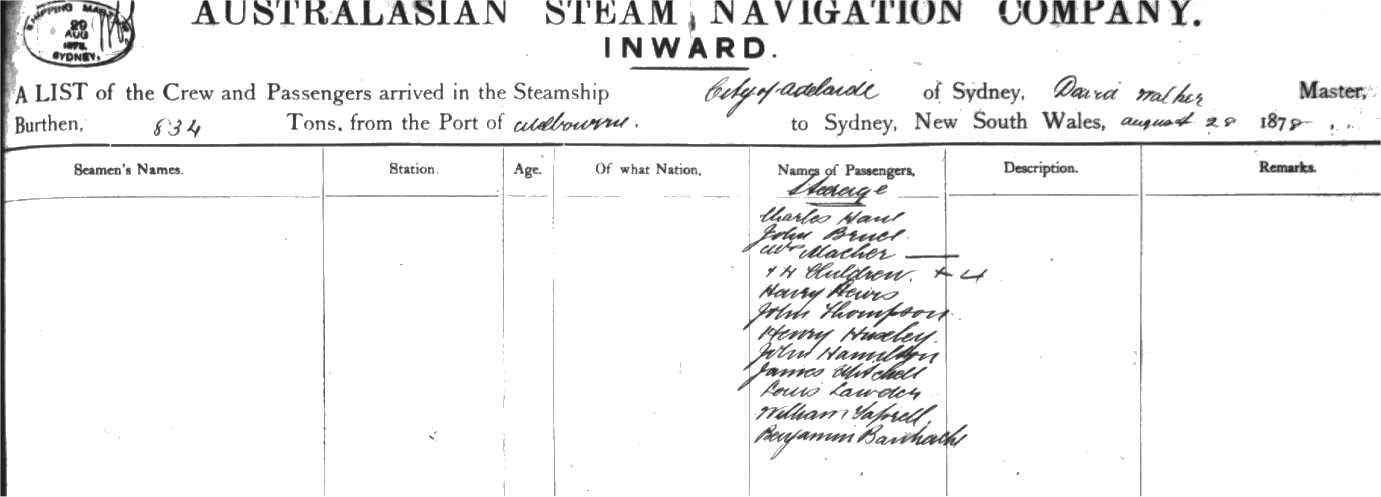 SHIPPING MASTER
29
AUG
1878
SYDNEY.
AUSTRALASIAN STEAM NAVIGATION COMPANY.
INWARD.
A LIST of the Crew and Passengers arrived in the Steamship City of Adelaide of Sydney, David Walker Master,
Burthen, 834 Tons, from the Port of Melbourne. to Sydney, New South Wales, August 28 1878
Seamen's Names. Station. Age. Of what Nation. Names of Passengers, Description. Remarks.
Steerage
Charles
John Bruce.
Mrs Macher
Children. + 4
Harry
John Thompson
Henry Huxley.
John Hamilton
James Mitchell
Louis
William
Benjamin